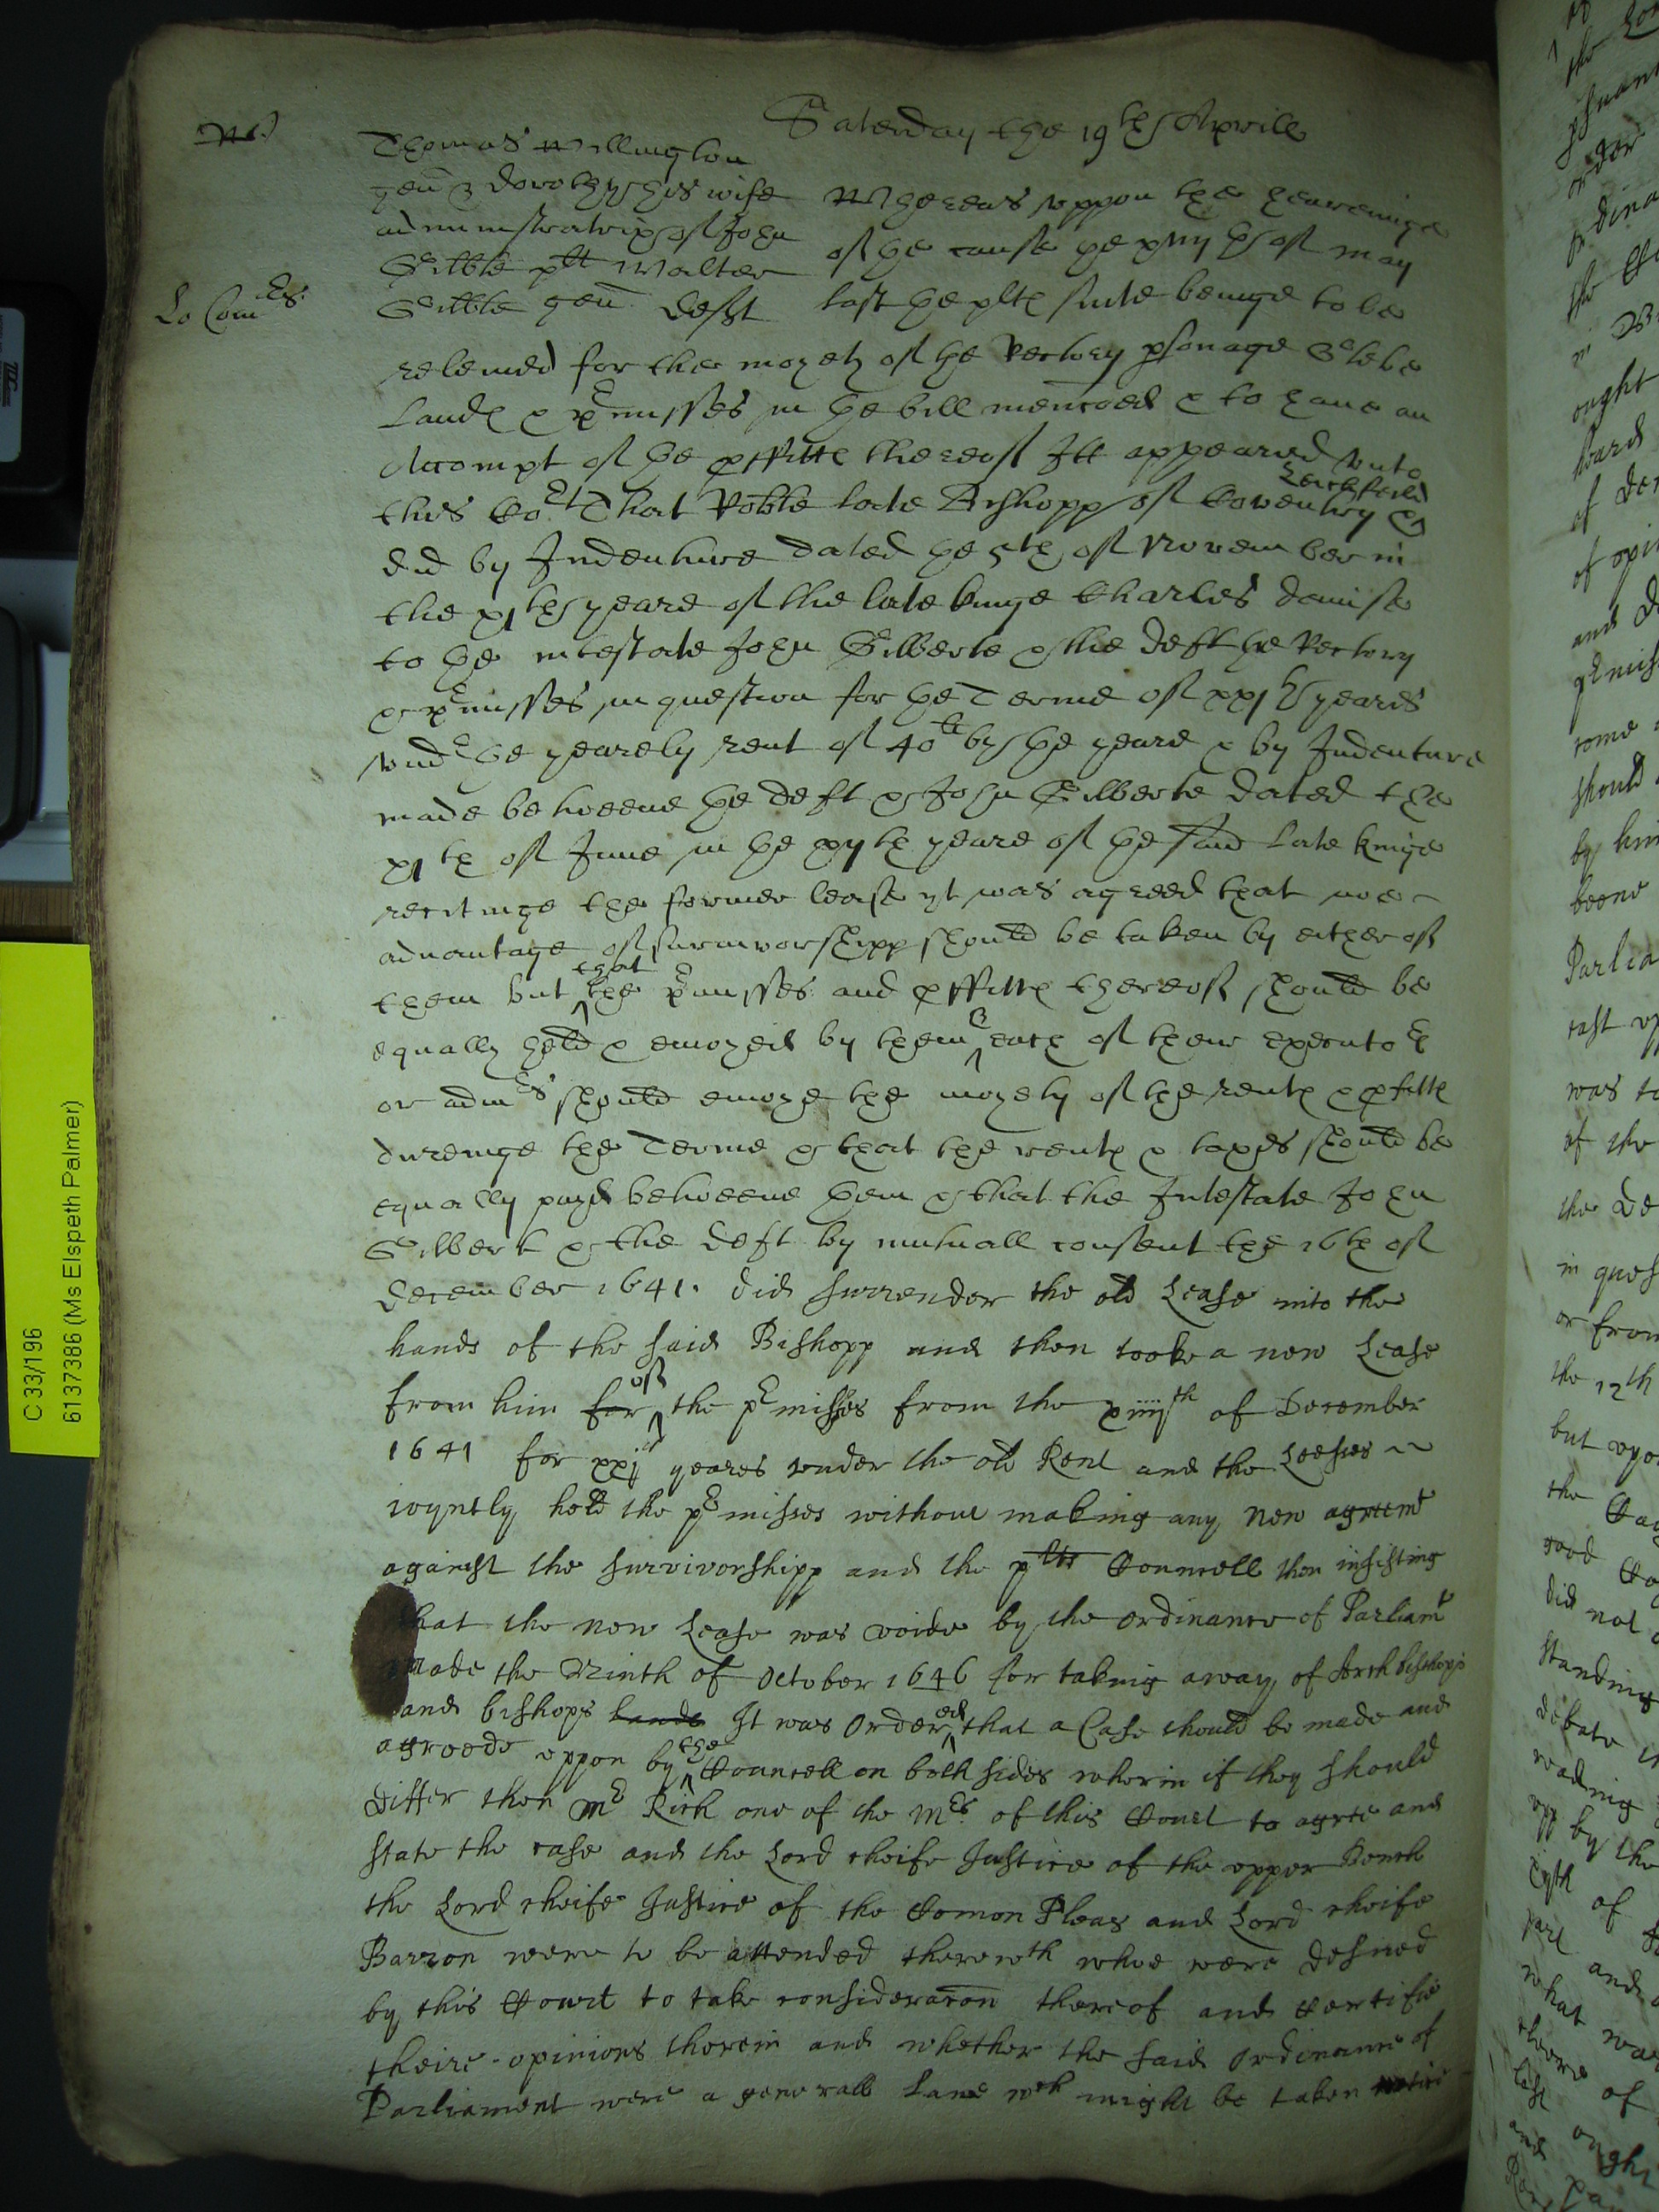 Saterday the 19th Aprill
W
Thomas Willington
gen & Dorothy his wife
administratrix of John
Gilbte plt Walter
Gilbte gen Deft
Lo Com:rs
Whereas uppon the heareinge
of the cause the xvijth of may
last the plts suite beinge to be
releived for the moyety of the Rectory psonage Glebe
Lands & pmisses in the bill mencoed & to have an
Accompt of the pffitts thereof Itt appeared unto
this Cort That Robte late Bishopp of Coventry & Leichfeild
did by Indenture dated the 5th of November in
the xjth yeare of the late kinge Charles demise
to the intestate John Gilberte & the Deft the Rectory
& pmisses in question for the Terme of xxjth yeares
und the yearely rent of 40ll by the yeare & by Indenture
made betweene the Deft & John Gilberte dated the
xjth of June in the xvth yeare of the said late kinge
recitinge the former lease yt was agreed that noe
advantage of survivorshipp should be taken by either of
them but that the pmisses and pffitts thereof should be
equally held & enioyed by them & each of their executors
or admrs should enioye the moyety of the rents & pfitts
dureinge the Terme & that the rents & taxes should be
equally payd betweene them & that the Intestate John
Gilbert & the Deft by mutuall consent the 16th of
December 1641. did surrender the old Lease into the
hands of the said Bishopp and then tooke a new Lease
from him for of the pmisses from the xiiijth of December
1641 for xxjty yeares under the old Rent and the Leases
ioyntly held the pmisses without making any new agreemt
against the survivorshipp and the plts Councell then insisting
that the new Lease was voide by the ordinance of Parliamt
made the Ninth of October 1646 for taking away of Archbishops
and bishops lands It was Ordered that a Case should be made and
agreede uppon by the Councell on both sides wherin if they should
differ then Mr Rich one of the Mrs of this Court to agree and
state the case and the Lord cheife Justice of the upper Bench
the Lord cheife Justice of the Comon Pleas and Lord cheife
Barron were to be attended therewth whoe were desired
by this Court to take consideracon thereof and certifie
theire opinions therein and whether the said Ordinance of
Parliament were a generall Lawe wch might be taken notice
C 33/196
6137386 (Ms Elspeth Palmer)